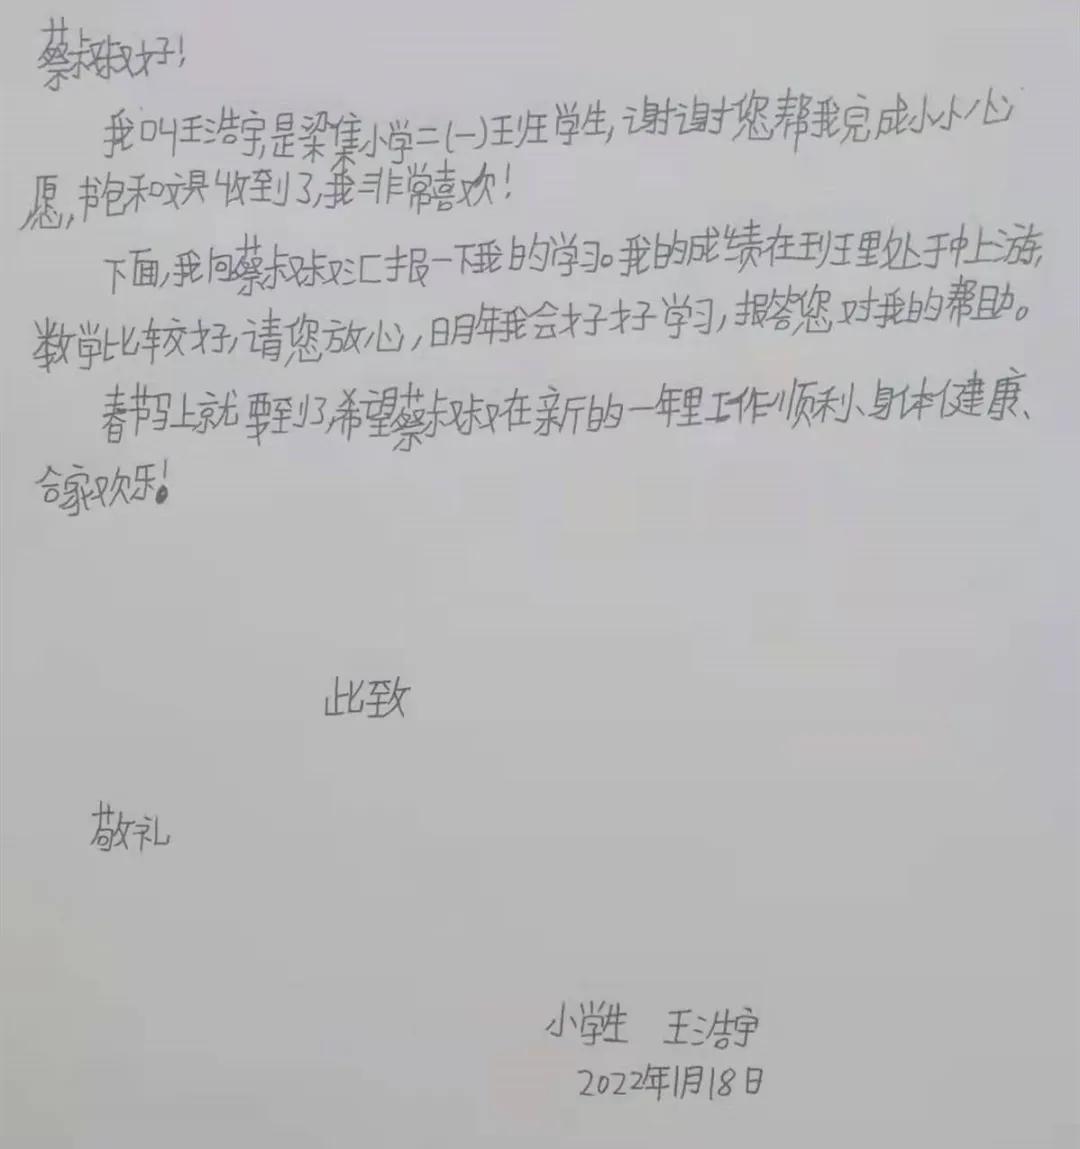 蔡叔叔好!
我叫王浩宇,是梁集小学二(一)班学生,谢谢您帮我完成小小心
愿,书包和文具收到了,我非常喜欢!
下面,我向蔡叔叔汇报一下我的学习。我的成绩在班里处于中上游,
数学比较好,请您放心,明年我会好好学习,报答您对我的帮助。
春节马上就要到了,希望蔡叔叔在新的一年里工作顺利、身体健康、
合家欢乐!
此致
敬礼
小学生 王浩宇
2022年1月18日